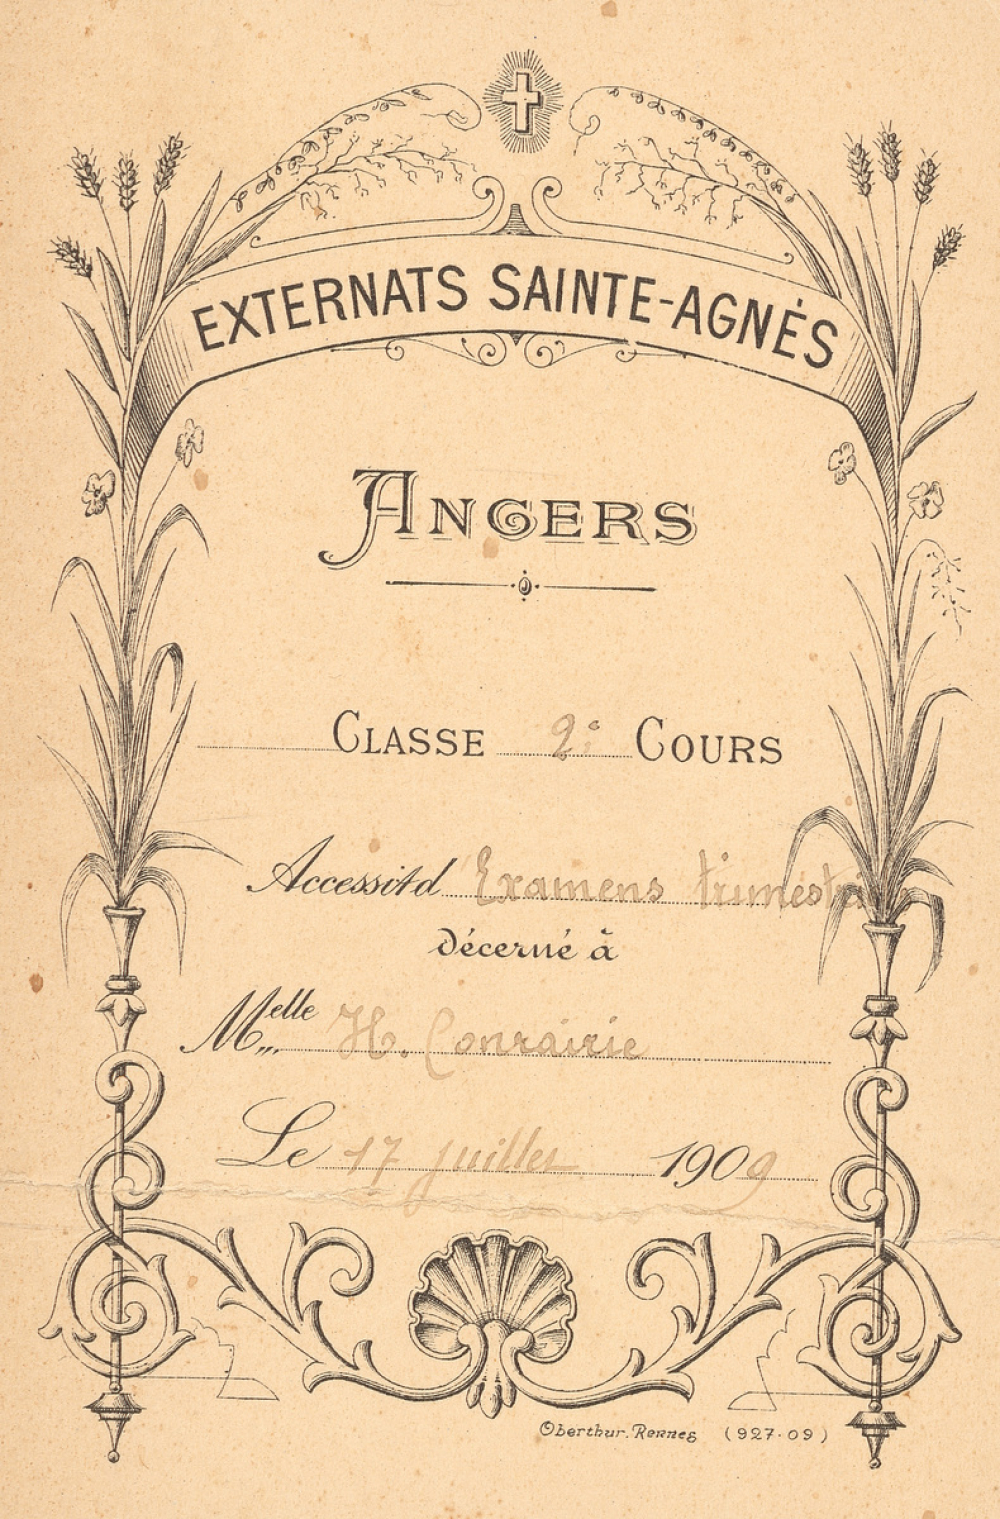 EXTERNATS SAINTE-AGNÈS
ANGERS
CLASSE 2e COURS
Accessit d Examens trimestriels
décerné à
Melle H. Conrairie
Le 17 juillet 1909
Oberthur. Rennes (927-09)